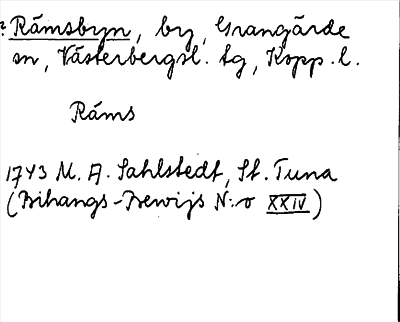 ? Råmsbyn, by, Grangärde
sn, Västerbergsl. tg, Kopp. l.
Råms
1743 M. A. Sahlstedt, St. Tuna
(Bihangs-Bewijs N:o XXIV)